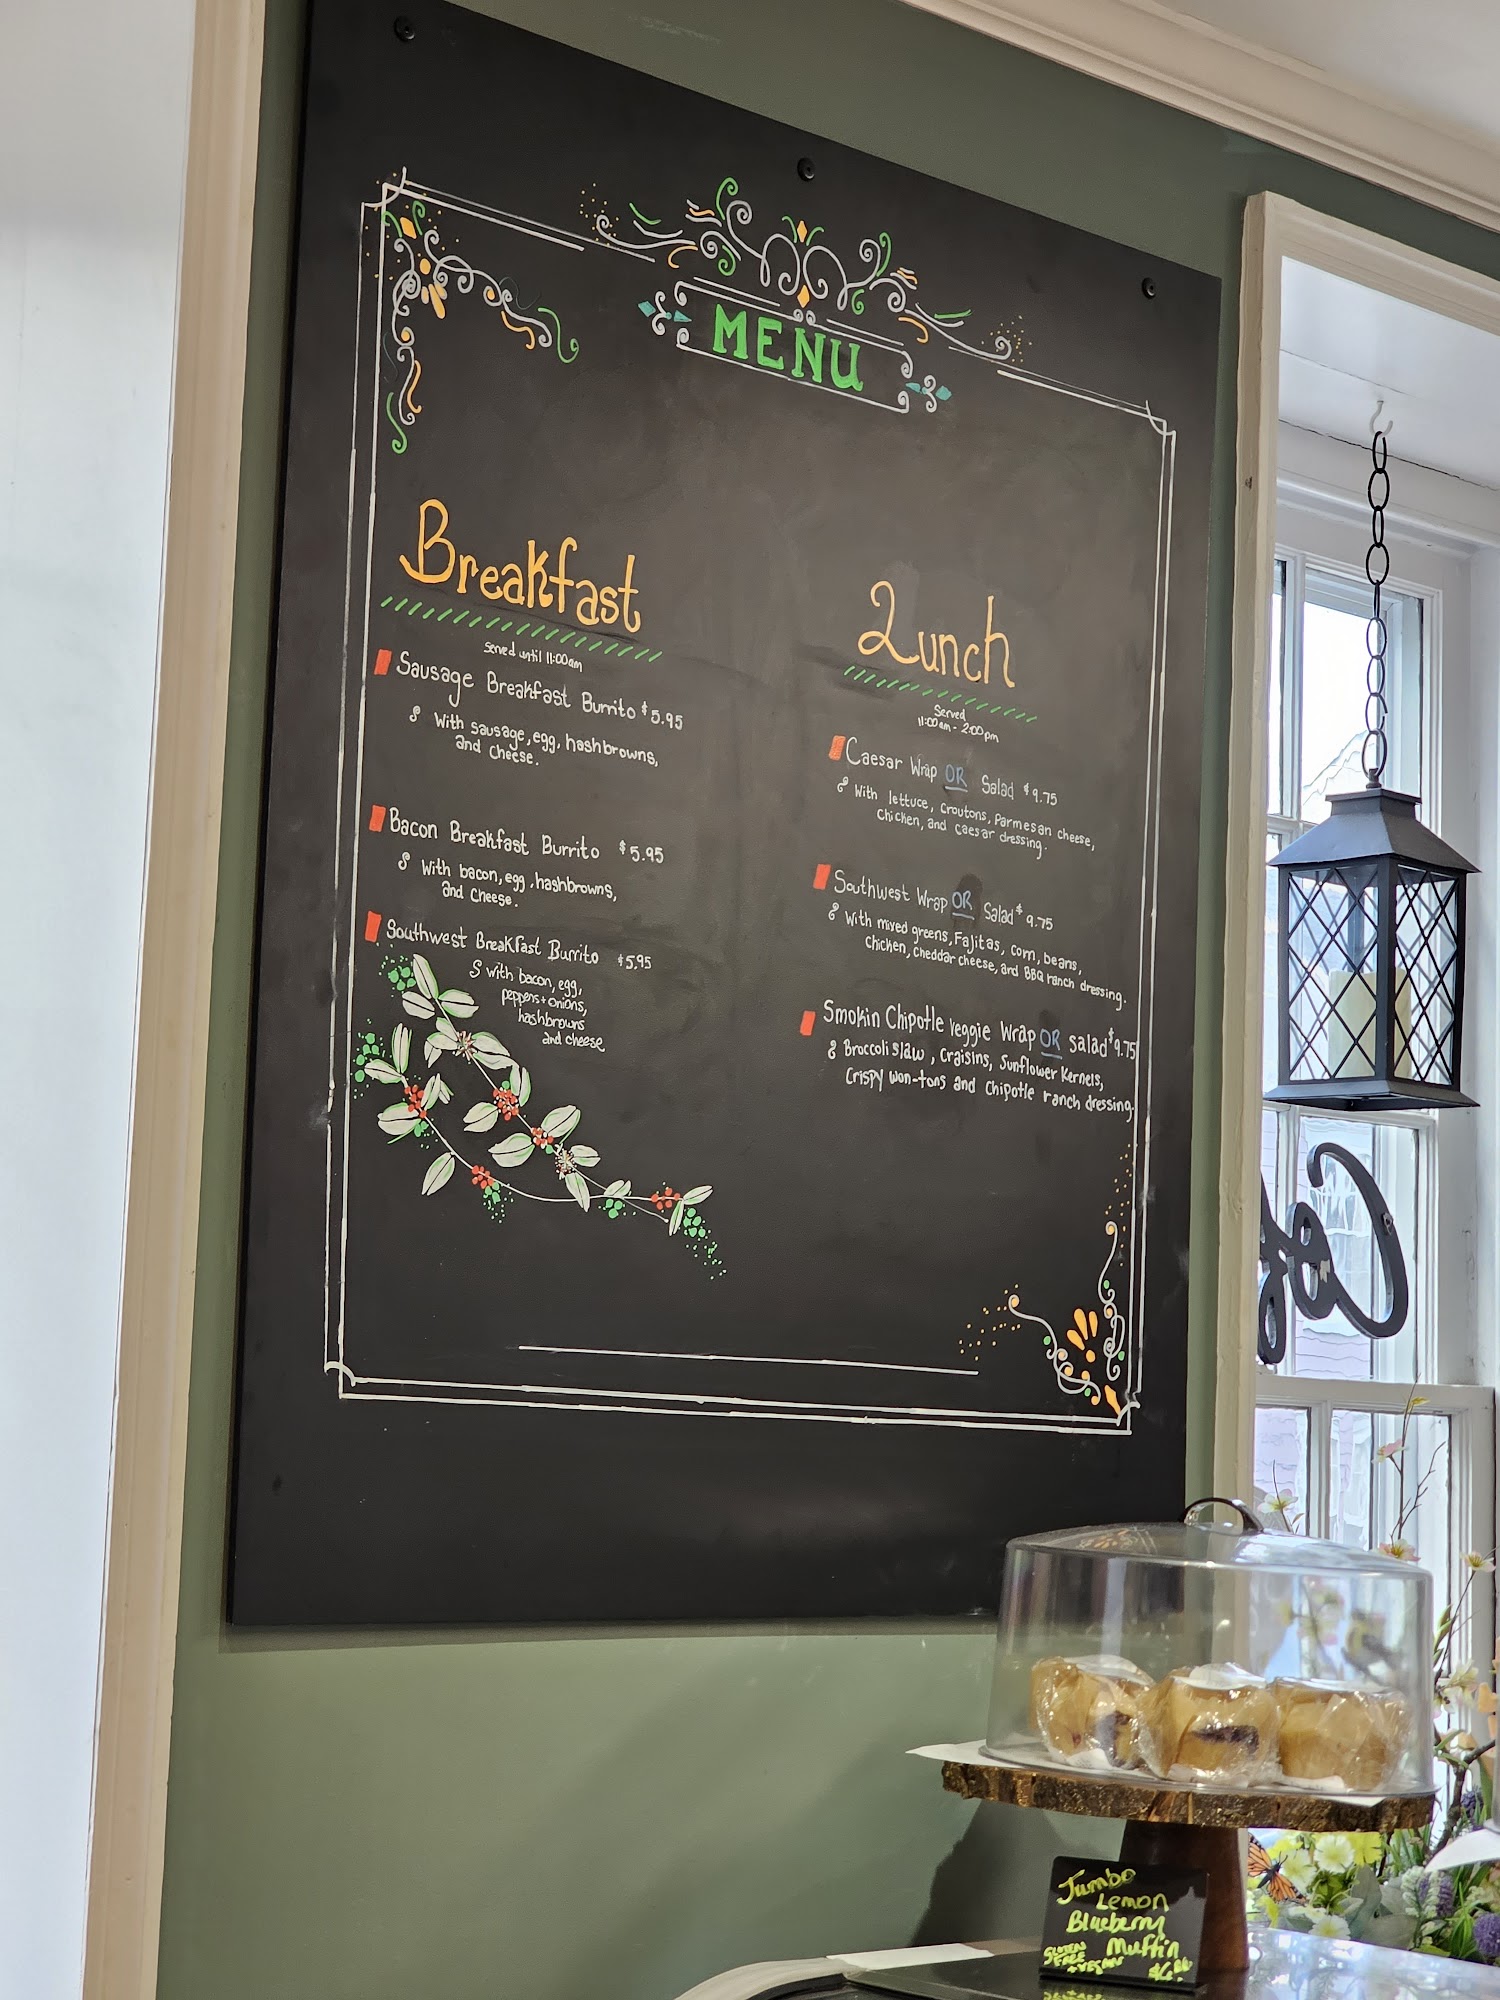 MENU
Breakfast
Served until 11:00am
Sausage Breakfast Burrito $5.95
With sausage, egg, hashbrowns,
and cheese.
Bacon Breakfast Burrito $5.95
With bacon, egg, hashbrowns,
and cheese.
Southwest Breakfast Burrito $5.95
with bacon, egg,
peppers + onions,
hashbrowns
and cheese
Lunch
Served
11:00am - 2:00pm
Caesar Wrap OR Salad $9.75
With lettuce, croutons, Parmesan cheese,
Chicken, and caesar dressing.
Southwest Wrap OR Salad $9.75
With mixed greens, Fajitas, corn, beans,
Chicken, Cheddar cheese, and BBQ ranch dressing.
Smokin Chipotle veggie Wrap OR salad $9.75
Broccoli slaw, Craisins, Sunflower Kernels,
Crispy won-tons and Chipotle ranch dressing.
Cof
Jumbo
Lemon
Blueberry
Muffin
GLUTEN
FREE
+ VEGAN